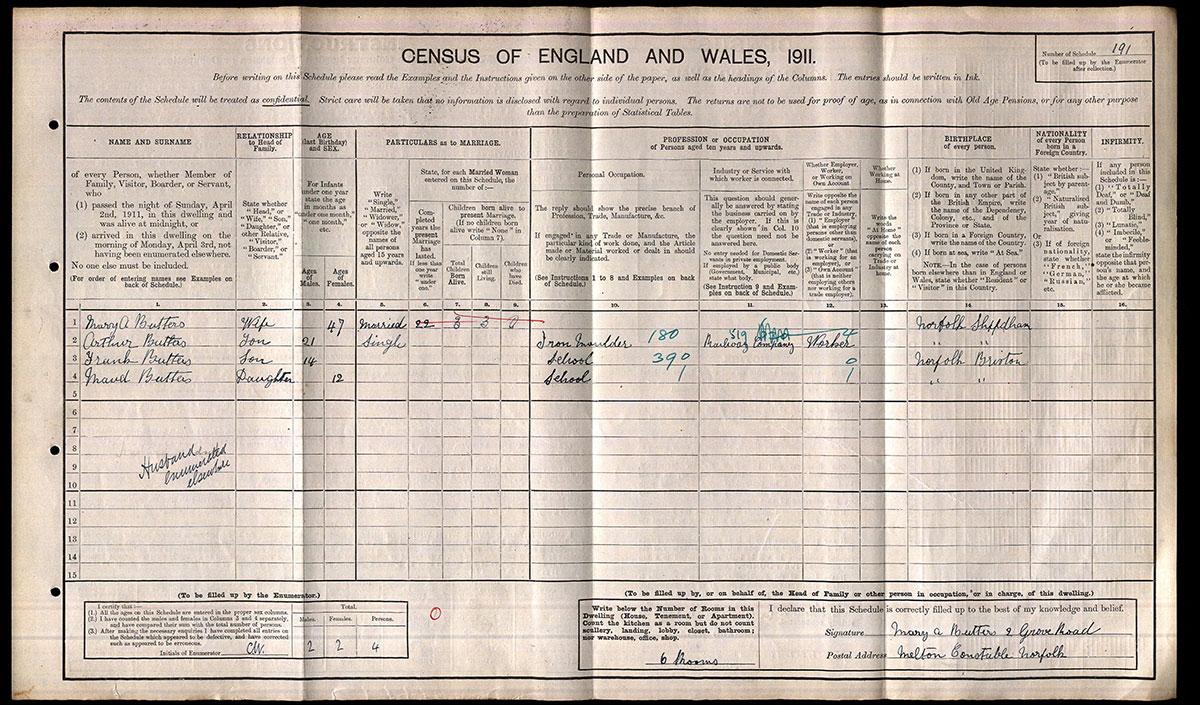 CENSUS OF ENGLAND AND WALES, 1911.
Number of Schedule 191
(To be filled up by the Enumerator
after collection.)
Before writing on this Schedule please read the Examples and the Instructions given on the other side of the paper, as well as the headings of the Columns. The entries should be written in Ink.
The contents of the Schedule will be treated as confidential. Strict care will be taken that no information is disclosed with regard to individual persons. The returns are not to be used for proof of age, as in connection with Old Age Pensions, or for any other purpose
than the preparation of Statistical Tables.
NAME AND SURNAME
of every Person, whether Member of
Family, Visitor, Boarder, or Servant,
who
(1) passed the night of Sunday, April
2nd, 1911, in this dwelling and
was alive at midnight, or
(2) arrived in this dwelling on the
morning of Monday, April 3rd, not
having been enumerated elsewhere.
No one else must be included.
(For order of entering names see Examples on
back of Schedule.)
1.
RELATIONSHIP
to Head of
Family.
State whether
"Head," or
"Wife," "Son,"
"Daughter," or
other Relative,
"Visitor,"
"Boarder," or
"Servant."
2.
AGE
(last Birthday)
and SEX.
For Infants
under one year
state the age
in months as
"under one month,"
"one month,"
etc.
Ages
of
Males.
3.
Ages
of
Females.
4.
PARTICULARS as to MARRIAGE.
Write
"Single,"
"Married,"
"Widower,"
or "Widow,"
opposite the
names of
all persons
aged 15 years
and upwards.
5.
State, for each Married Woman
entered on this Schedule, the
number of:—
Completed
years the
present
Marriage
has
lasted.
If less than
one year
write
"under
one."
6.
Children born alive to
present Marriage.
(If no children born
alive write "None" in
Column 7).
Total
Children
Born
Alive.
7.
Children
still
Living.
8.
Children
who
have
Died.
9.
PROFESSION or OCCUPATION
of Persons aged ten years and upwards.
Personal Occupation.
The reply should show the precise branch of
Profession, Trade, Manufacture, &c.
If engaged in any Trade or Manufacture, the
particular kind of work done, and the Article
made or Material worked or dealt in should
be clearly indicated.
(See Instructions 1 to 8 and Examples on back
of Schedule.)
10.
Industry or Service with
which worker is connected.
This question should generally
be answered by stating
the business carried on by
the employer. If this is
clearly shown in Col. 10
the question need not be
answered here.
No entry needed for Domestic Servants
in private employment.
If employed by a public body
(Government, Municipal, etc.)
state what body.
(See Instruction 9 and Examples
on back of Schedule.)
11.
Whether Employer,
Worker,
or Working on
Own Account
12.
Whether
Working at
Home.
Write the
words
"At Home"
opposite the
name of each
person
carrying on
Trade or
Industry at
home.
13.
BIRTHPLACE
of every person.
(1) If born in the United Kingdom,
write the name of the
County, and Town or Parish.
(2) If born in any other part of
the British Empire, write
the name of the Dependency,
Colony, etc., and of the
Province or State.
(3) If born in a Foreign Country,
write the name of the Country.
(4) If born at sea, write "At Sea."
NOTE.—In the case of persons
born elsewhere than in England or
Wales, state whether "Resident" or
"Visitor" in this Country.
14.
NATIONALITY
of every Person
born in a
Foreign Country.
State whether:—
(1) "British
subject by
parentage."
(2) "Naturalised
British subject,"
giving
year of naturalisation.
Or
(3) If of foreign
nationality,
state whether
"French,"
"German,"
"Russian,"
etc.
15.
INFIRMITY.
If any person
included in this
Schedule is:—
(1) "Totally
Deaf," or "Deaf
and Dumb,"
(2) "Totally
Blind,"
(3) "Lunatic,"
(4) "Imbecile,"
or "Feeble-minded,"
state the infirmity
opposite that person's
name, and
the age at which
he or she became
afflicted.
16.
1 Mary A Butters Wife 47 Married 22 3 3 0 Norfolk Shipdham
2 Arthur Butters Son 21 Single Iron Moulder 180 Railway Company 519 Worker 4 " "
3 Frank Butters Son 14 School 390 0 Norfolk Briston
4 Maud Butters Daughter 12 School 1 1 " "
5
6
7
8
Husband
9
enumerated
elsewhere
10
11
12
13
14
15
(To be filled up by the Enumerator.)
I certify that:—
(1.) All the ages on this Schedule are entered in the proper sex columns.
(2.) I have counted the males and females in Columns 3 and 4 separately,
and have compared their sum with the total number of persons.
(3.) After making the necessary enquiries I have completed all entries on
the Schedule which appeared to be defective, and have corrected
such as appeared to be erroneous.
Initials of Enumerator
Total.
Males. Females. Persons.
2 2 4
(To be filled up by, or on behalf of, the Head of Family or other person in occupation, or in charge, of this dwelling.)
Write below the Number of Rooms in this
Dwelling (House, Tenement, or Apartment).
Count the kitchen as a room but do not count
scullery, landing, lobby, closet, bathroom;
nor warehouse, office, shop.
6 Rooms
I declare that this Schedule is correctly filled up to the best of my knowledge and belief.
Signature Mary A Butters 2 Grove Road
Postal Address Melton Constable Norfolk